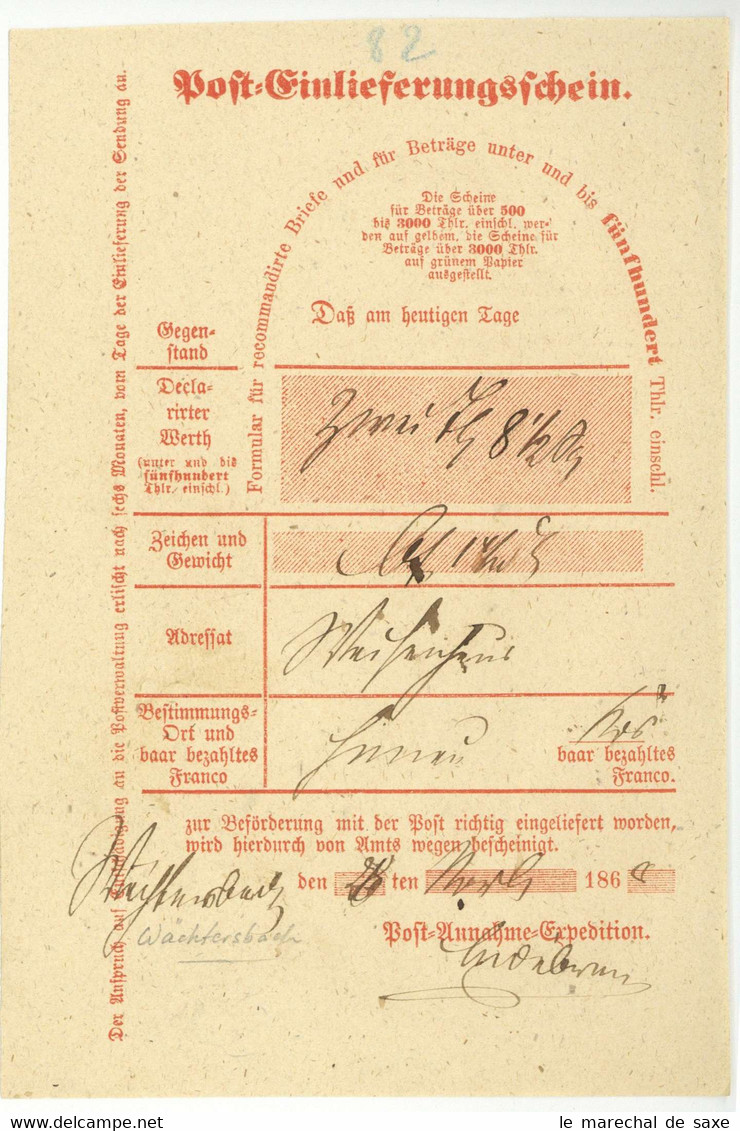 82
Post-Einlieferungsschein.
Formular für recommandirte Briefe und für Beträge unter und bis fünfhundert Thlr. einschl.
Die Scheine
für Beträge über 500
bis 3000 Thlr. einschl. wer-
den auf gelbem, die Scheine für
Beträge über 3000 Thlr.
auf grünem Papier
ausgestellt.
Daß am heutigen Tage
Gegen-
stand
Decla-
rirter
Werth
(unter und bis
fünfhundert
Thlr. einschl.)
Zwei 8 1/2
Zeichen und
Gewicht
Adressat
Waisenhaus
Bestimmungs-
Ort und
baar bezahltes
Franco
Hanau
baar bezahltes
Franco.
zur Beförderung mit der Post richtig eingeliefert worden,
wird hierdurch von Amts wegen bescheinigt.
Wächtersbach den ten 186
Wächtersbach
Post-Annahme-Expedition.
Der Anspruch auf Entschädigung an die Postverwaltung erlischt nach sechs Monaten, vom Tage der Einlieferung der Sendung an.
www.delcampe.net
le marechal de saxe